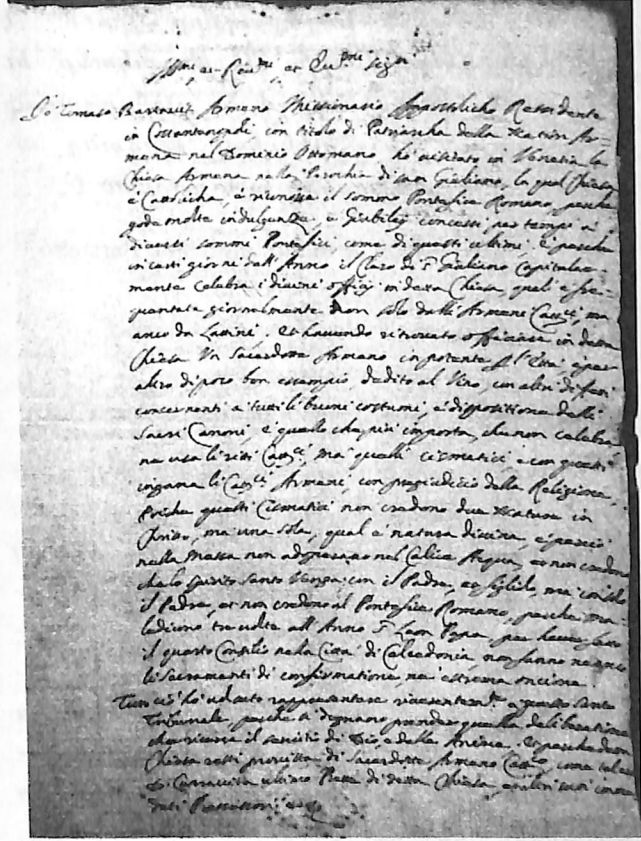 Ill.mi et Rev.mi et Ecc.mi Sig.ri
Io Tomaso Armeno Missionario Appostolicho Ressidente
in Costantinopoli, con titolo di Patriarcha della Nation Ar-
mena nel Dominio Ottomano, ho visitato in Venetia la
Chiesa Armena nella Parochia di San Giuliano, la qual Chiesa
è Cattolicha, e riconosce il sommo Pontefice Romano, perche
gode molte indulgenze, e Giubilei concessi per tempo da
diversi sommi Pontefici, come di questi ultimi, e perche
in certi giorni dell'Anno il Clero di S. Giuliano Capitular-
mente celebra i divini officij in detta Chiesa, qual è fre-
quentata giornalmente non solo dalli Armeni Catt.ci ma
anco da Latini. Et havendo ritrovato officiare in detta
Chiesa un Sacerdote Armeno impotente p. l'età, e per
altro di poco bon essempio, dedito al Vino, con altri difetti
concernenti a tutti li buoni costumi, e dispositione delli
Sacri Canoni, e quello che più importa, che non celebra
ne usa li ritti Catt.ci, ma quelli Cismatici e con questo
ingana li Catt.ci Armeni, con pregiudicio della Religione,
Poiche questi Cismatici non credono due Nature in
Christo, ma una sola, qual è natura divina, e perciò
nella Messa non adoperano nel Calice Acqua, et non credono
che lo Spirito Santo Venga con il Padre, et figliolo, ma con solo
il Padre, et non credono al Pontefice Romano, perche ma-
lediscono tre volte all'Anno S. Leon Papa, per haver fatto
il quarto Consilio nella Città di Calcedonia, non fanno ne anco
li Sacramenti di confirmatione, ne estrema oncione.
Tutto ciò ho voluto rappresentare riverentem.te a questo Santo
Tribunale, perche si degnano prender quella deliberatione
che ricerca il servitio di Dio, e delle Anime, et perche detta
Chiesa resti provista di Sacerdote Armeno Catt.co, come
ultimo Prete di detta Chiesa, e altri suoi